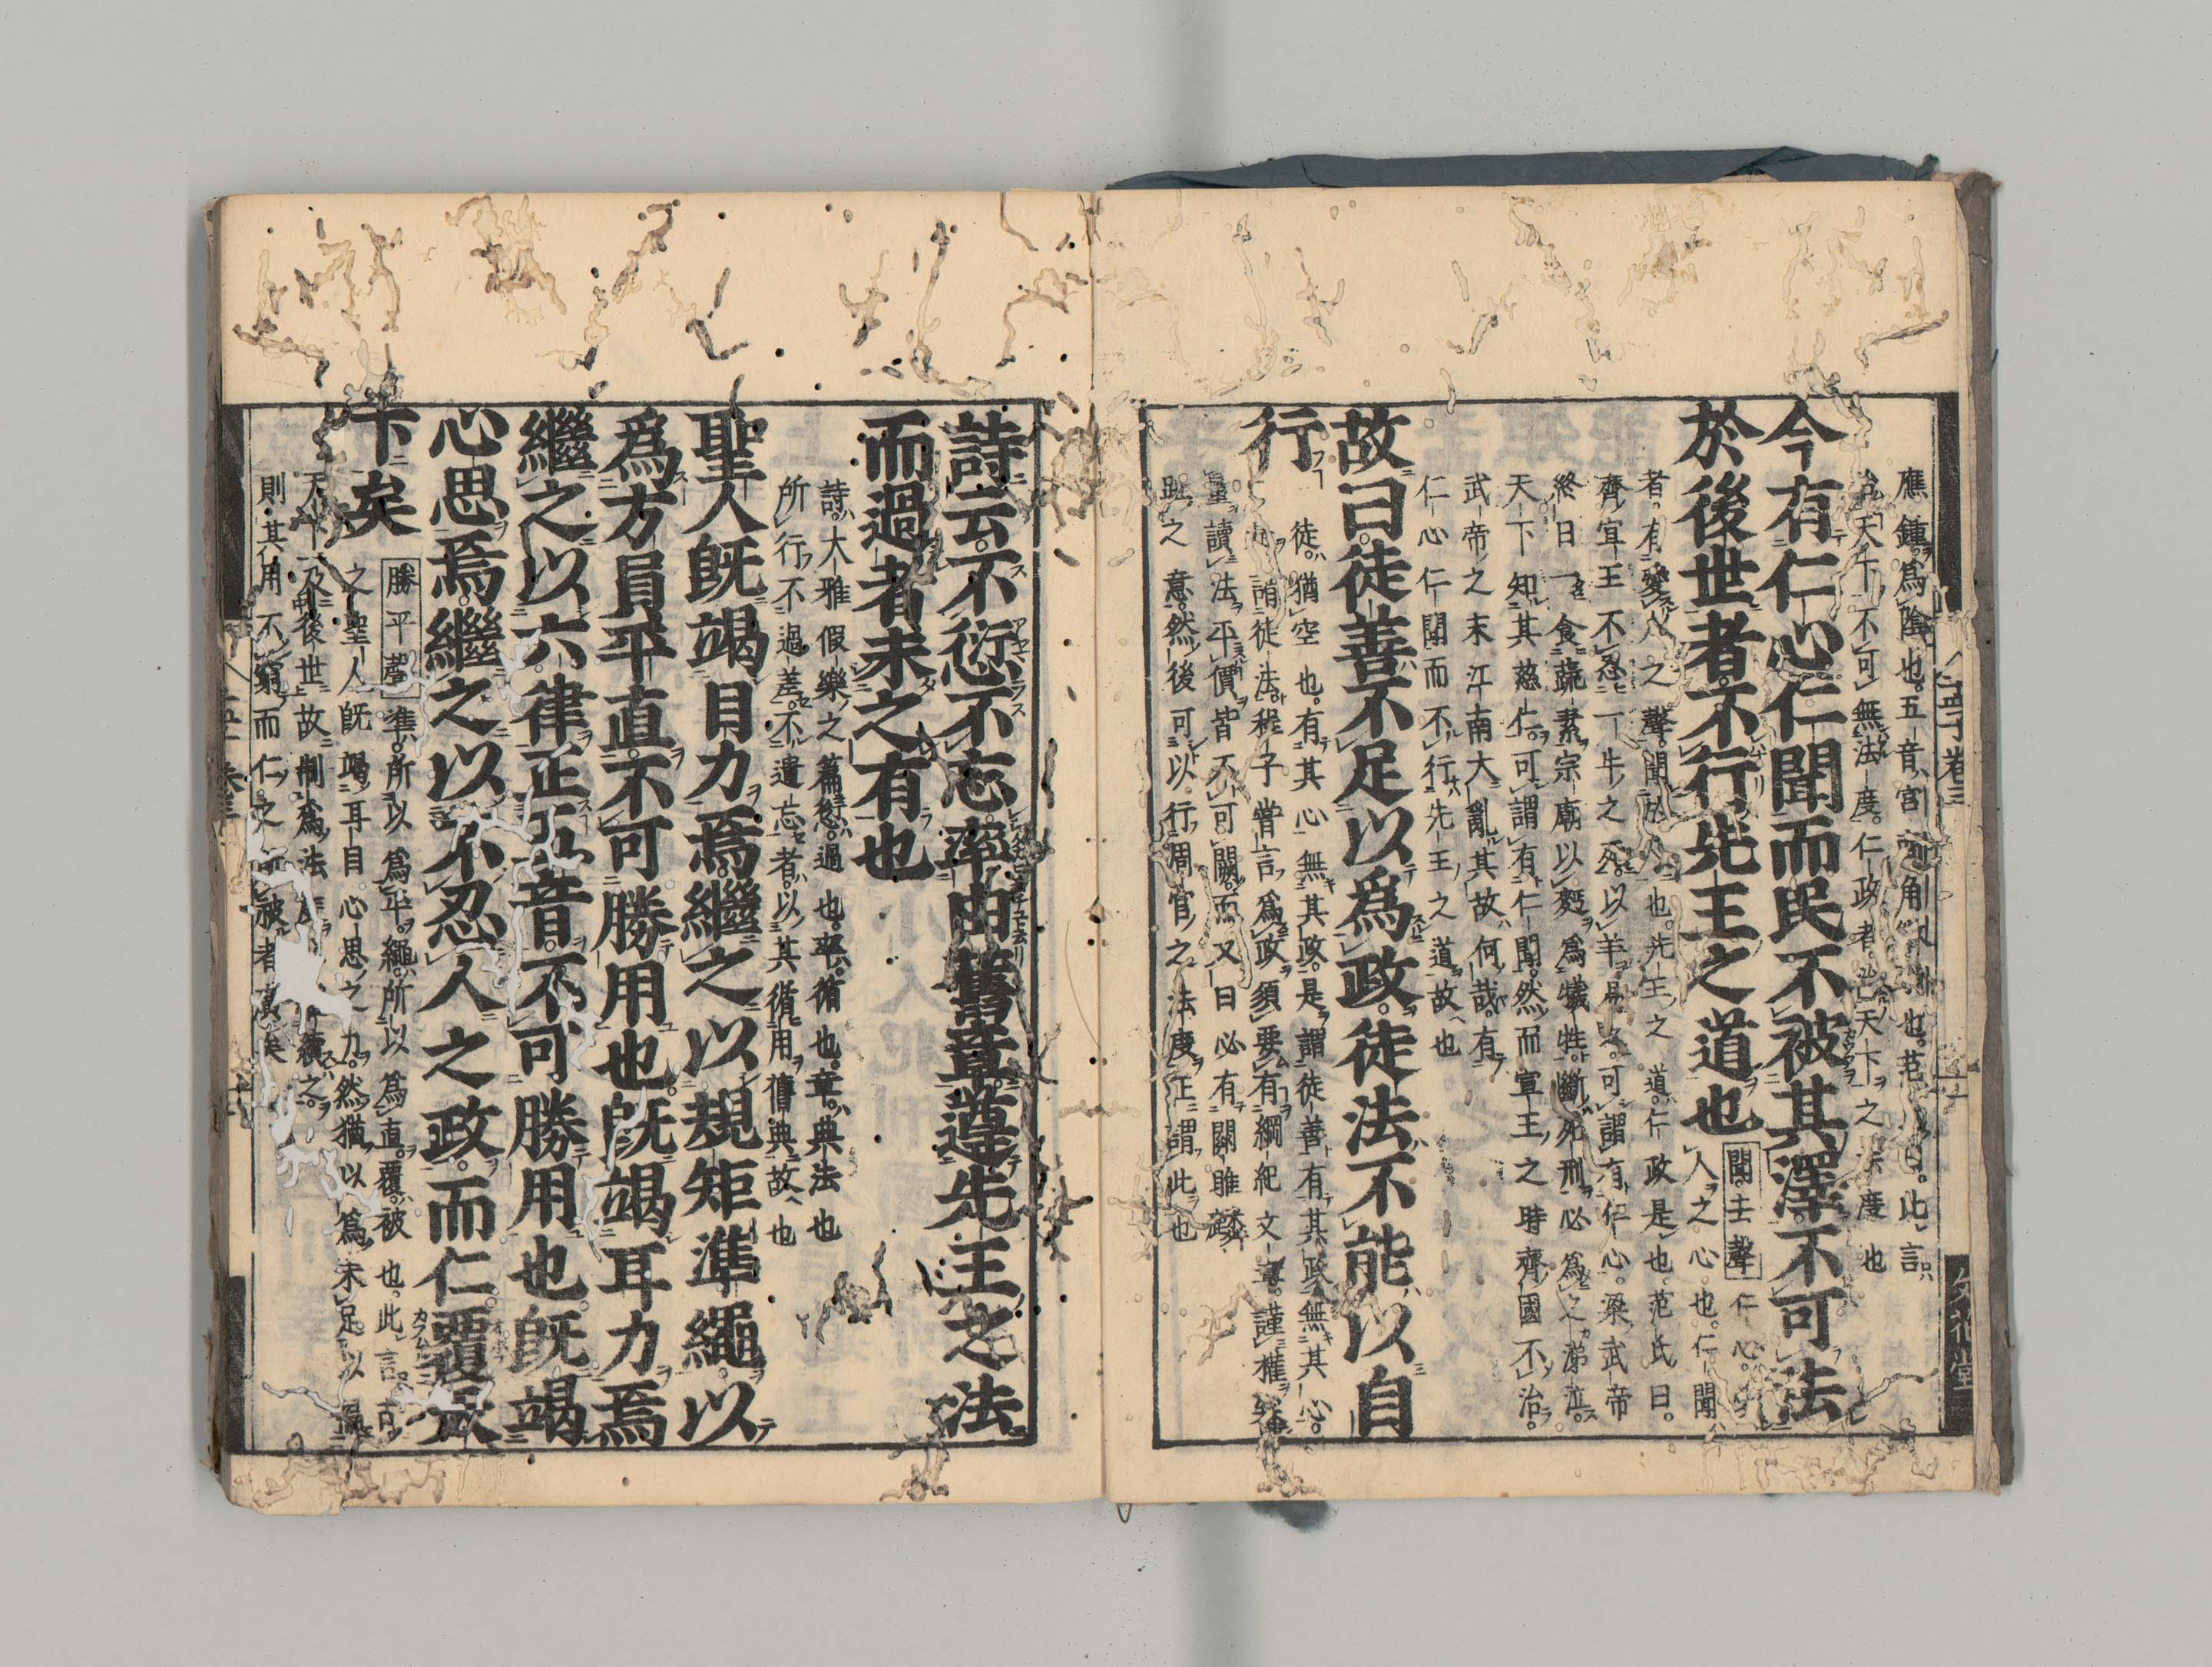 應鍾爲陰也五音宮商角徵羽也范氏曰此言
治天下不可無法度仁政者治天下之法度也
今有仁心仁聞而民不被其澤不可法
於後世者不行先王之道也
聞去聲
仁心
人之心也仁聞
者有愛人之聲聞於人也先王之道仁政是也范氏曰
齊宣王不忍一牛之死以羊易之可謂有仁心梁武帝
終日一食蔬素宗廟以麪爲犧牲斷死刑必爲之涕泣
天下知其慈仁可謂有仁聞然而宣王之時齊國不治
武帝之末江南大亂其故何哉有
仁心仁聞而不行先王之道故也
故曰徒善不足以爲政徒法不能以自
行
徒猶空也有其心無其政是謂徒善有其政無其心
是謂徒法程子嘗言爲政須要有綱紀文章謹權審
量讀法平價皆不可闕而又曰必有關雎麟
趾之意然後可以行周官之法度正謂此也
孟子卷三
文和堂
詩云不愆不忘率由舊章遵先王之法
而過者未之有也
詩大雅假樂之篇愆過也率循也章典法也
所行不過差不遺忘者以其循用舊典故也
聖人旣竭目力焉繼之以規矩準繩以
爲方員平直不可勝用也旣竭耳力焉
繼之以六律正五音不可勝用也旣竭
心思焉繼之以不忍人之政而仁覆天
下矣
勝平聲
準所以爲平繩所以爲直覆被也此言古
之聖人旣竭耳目心思之力然猶以爲未足以徧
天下及後世故制爲法度以繼續之
則其用不窮而仁之所被者廣矣